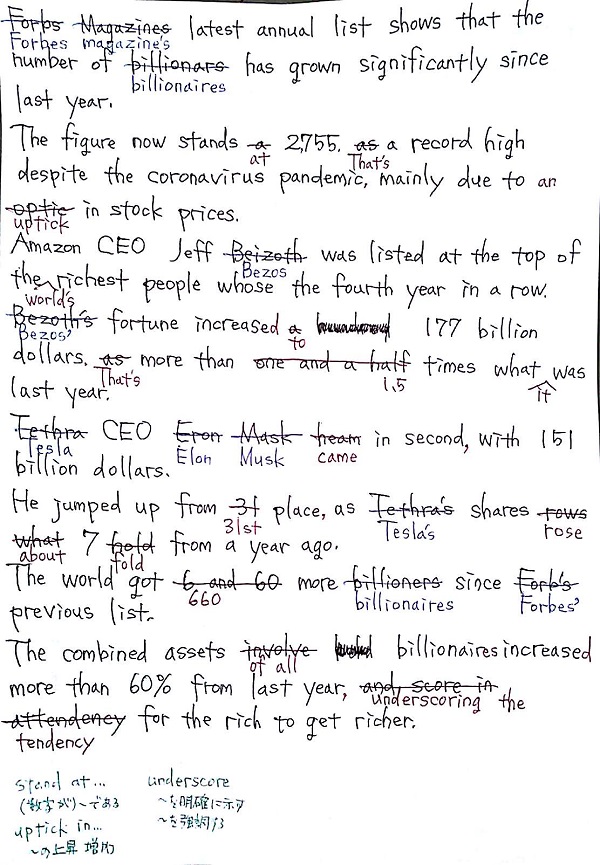 Forbs Magazines latest annual list shows that the
Forbes magazine's
number of billionars has grown significantly since
billionaires
last year.
The figure now stands a 2,755. as a record high
at That's
despite the coronavirus pandemic, mainly due to an
optic in stock prices.
uptick
Amazon CEO Jeff Beizoth was listed at the top of
Bezos
the richest people whose the fourth year in a row.
world's
Bezoth's fortune increased a 177 billion
Bezos' to
dollars. as more than one and a half times what was
That's 1.5 it
last year.
Tethra CEO Eron Mask heam in second, with 151
Tesla Elon Musk came
billion dollars.
He jumped up from 31 place, as Tethra's shares rows
31st Tesla's rose
what 7 hold from a year ago.
about fold
The world got 6 and 60 more billioners since Forb's
660 billionaires Forbes'
previous list.
The combined assets involve billionaires increased
of all
more than 60% from last year, and score in the
underscoring
attendency for the rich to get richer.
tendency
stand at... underscore
(数字が)～である ～を明確に示す
uptick in... ～を強調する
～の上昇 増加